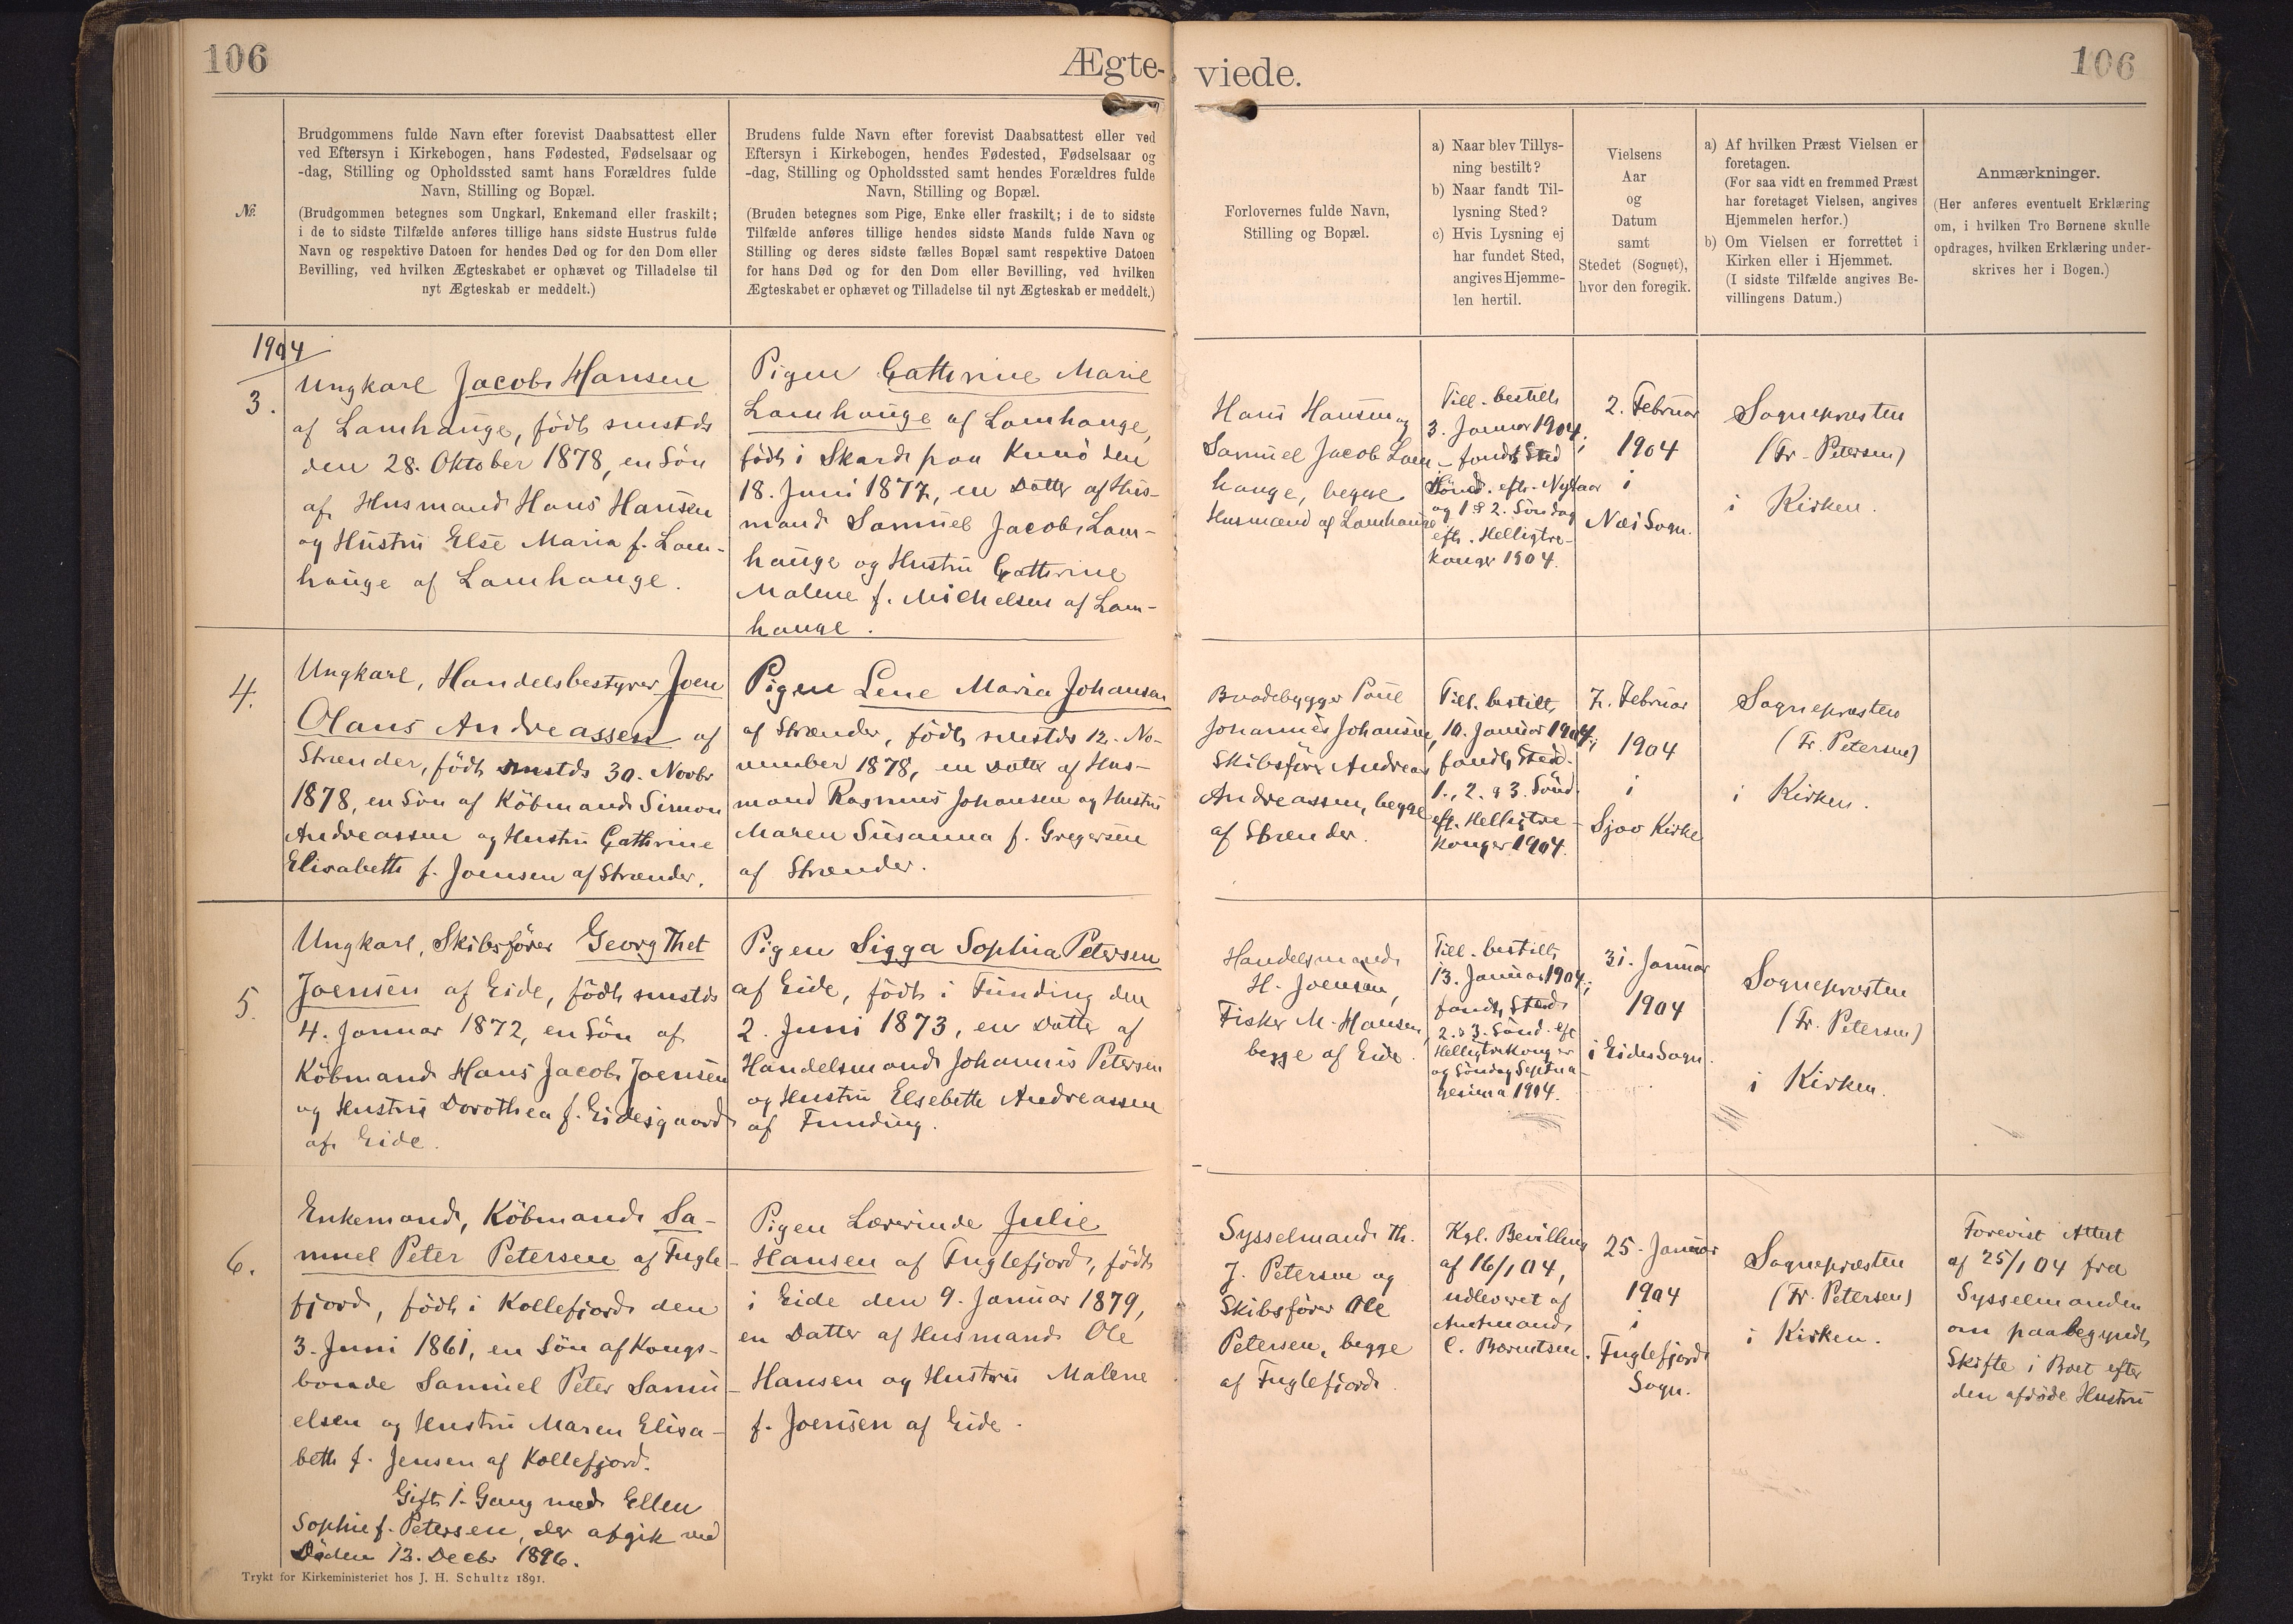 106
Ægte-
viede.
106
№.
Brudgommens fulde Navn efter forevist Daabsattest eller
ved Eftersyn i Kirkebogen, hans Fødested, Fødselsaar og
-dag, Stilling og Opholdssted samt hans Forældres fulde
Navn, Stilling og Bopæl.
(Brudgommen betegnes som Ungkarl, Enkemand eller fraskilt;
i de to sidste Tilfælde anføres tillige hans sidste Hustrus fulde
Navn og respektive Datoen for hendes Død og for den Dom eller
Bevilling, ved hvilken Ægteskabet er ophævet og Tilladelse til
nyt Ægteskab er meddelt.)
Brudens fulde Navn efter forevist Daabsattest eller ved
Eftersyn i Kirkebogen, hendes Fødested, Fødselsaar og
-dag, Stilling og Opholdssted samt hendes Forældres fulde
Navn, Stilling og Bopæl.
(Bruden betegnes som Pige, Enke eller fraskilt; i de to sidste
Tilfælde anføres tillige hendes sidste Mands fulde Navn og
Stilling og deres sidste fælles Bopæl samt respektive Datoen
for hans Død og for den Dom eller Bevilling, ved hvilken
Ægteskabet er ophævet og Tilladelse til nyt Ægteskab er meddelt.)
Forlovernes fulde Navn,
Stilling og Bopæl.
a) Naar blev Tillys-
ning bestilt?
b) Naar fandt Til-
lysning Sted?
c) Hvis Lysning ej
har fundet Sted,
angives Hjemme-
len hertil.
Vielsens
Aar
og
Datum
samt
Stedet (Sognet),
hvor den foregik.
a) Af hvilken Præst Vielsen er
foretagen.
(For saa vidt en fremmed Præst
har foretaget Vielsen, angives
Hjemmelen herfor.)
b) Om Vielsen er forrettet i
Kirken eller i Hjemmet.
(I sidste Tilfælde angives Be-
villingens Datum.)
Anmærkninger.
(Her anføres eventuelt Erklæring
om, i hvilken Tro Børnene skulle
opdrages, hvilken Erklæring under-
skrives her i Bogen.)
1904
3.
Ungkarl Jacob Hansen
af Lamhauge, født smstds
den 28. Oktober 1878, en Sön
af Husmand Hans Hansen
og Hustru Else Maria f. Lam-
hauge af Lamhauge.
Pigen Cathrine Marie
Lamhauge af Lamhauge,
födt i Skard paa Kunö den
18. Juni 1877, en Datter af Hus-
mand Samuel Jacob Lam-
hauge og Hustru Cathrine
Malene f. Michelsen af Lam-
hauge.
Hans Hansen og
Samuel Jacob Lam-
hauge, begge
Husmænd af Lamhauge
Till. bestilt
3. Januar 1904;
fandt Sted
Sönd. eft. Nytaar
og 1 & 2. Söndag
eft. Helligtre-
konger 1904.
2. Februar
1904
i
Næs Sogn.
Sognepræsten
(Fr. Petersen)
i Kirken.
4.
Ungkarl, Handelsbestyrer Joen
Olaus Andreassen af
Strænder, födt smstds 30. Novbr
1878, en Sön af Köbmand Simon
Andreassen og Hustru Cathrine
Elisabeth f. Joensen af Strænder.
Pigen Lene Maria Johansen
af Strænder, födt smstds 12. No-
vember 1878, en Datter af Hus-
mand Rasmus Johansen og Hustru
Maren Susanna f. Gregersen
af Strænder.
Baadebygger Poul
Johannes Johansen,
Skibsförer Andreas
Andreassen, begge
af Strænder.
Till. bestilt
10. Januar 1904;
fandt Sted
1., 2. & 3. Sönd.
eft. Helligtre-
konger 1904.
7. Februar
1904
i
Sjov Kirke
Sognepræsten
(Fr. Petersen)
i Kirken.
5.
Ungkarl, Skibsförer Georg Thet
Joensen af Eide, födt smstds
4. Januar 1872, en Sön af
Köbmand Hans Jacob Joensen
og Hustru Dorothea f. Eidesgaard
af Eide.
Pigen Sigga Sophia Petersen
af Eide, födt i Funding den
2. Juni 1873, en Datter af
Handelsmand Johannes Petersen
og Hustru Elsebeth Andreassen
af Funding.
Handelsmand
H. Joensen,
Fisker M. Hansen,
begge af Eide.
Till. bestilt
13. Januar 1904;
fandt Sted
2. & 3. Sönd. eft
Helligtrekonger
og Söndag Septua-
gesima 1904.
31. Januar
1904
i Eides Sogn.
Sognepræsten
(Fr. Petersen)
i Kirken.
6.
Enkemand, Köbmand Sa-
muel Peter Petersen af Fugle-
fjord, födt i Kollefjord den
3. Juni 1861, en Sön af Kongs-
bonde Samuel Peter Samu-
elsen og Hustru Maren Elisa-
beth f. Jensen af Kollefjord.
Gift 1. Gang med Ellen
Sophie f. Petersen, der afgik ved
Döden 12. Decbr 1896.
Pigen Lærerinde Julie
Hansen af Fuglefjord, födt
i Eide den 9. Januar 1879,
en Datter af Husmand Ole
Hansen og Hustru Malene
f. Joensen af Eide.
Sysselmand Th.
J. Petersen og
Skibsförer Ole
Petersen, begge
af Fuglefjord.
Kgl. Bevilling
af 16/1 04,
udleveret af
Amtmand
C. Bærentsen.
25. Januar
1904
i
Fuglefjord
Sogn.
Sognepræsten
(Fr. Petersen)
i Kirken.
Forevist Attest
af 25/1 04 fra
Sysselmanden
om paabegyndt
Skifte i Boet efter
den afdöde Hustru
Trykt for Kirkeministeriet hos J. H. Schultz 1891.